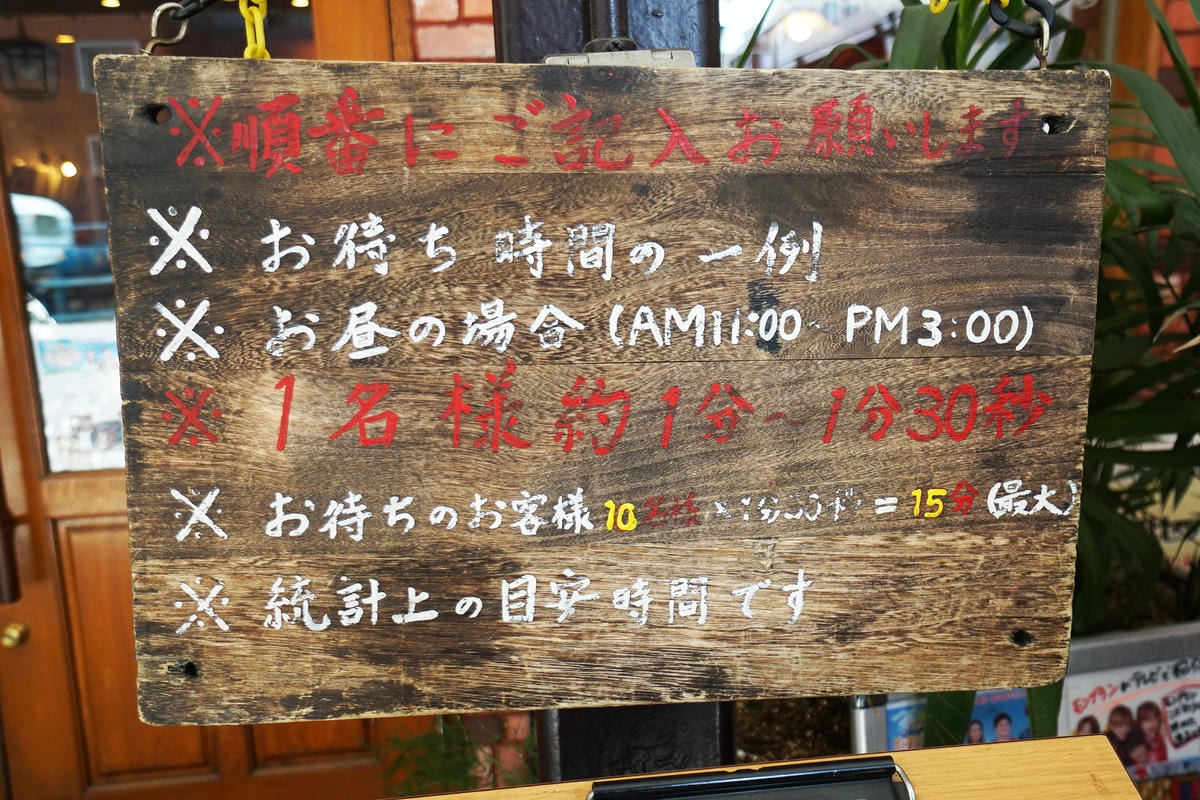 ※順番にご記入お願いします
※ お待ち時間の一例
※ お昼の場合(AM11:00~ PM3:00)
※ 1名様約1分~1分30秒
※ お待ちのお客様10名様×1分30秒=15分(最大)
※ 統計上の目安時間です
モンブランがテレビで